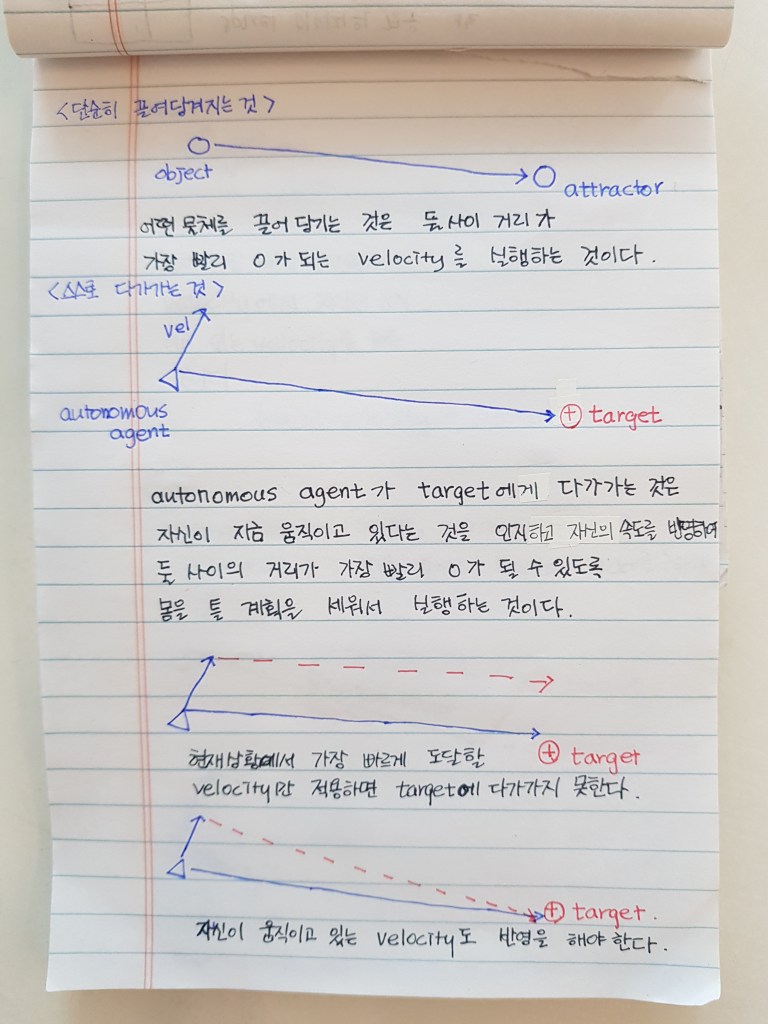 <단순히 끌어당겨지는 것>
object
attractor
어떤 물체를 끌어 당기는 것은 둘 사이 거리가
가장 빨리 0가 되는 velocity를 실행하는 것이다.
<스스로 다가가는 것>
vel
autonomous
agent
target
autonomous agent가 target에게 다가가는 것은
자신이 지금 움직이고 있다는 것을 인지하고 자신의 속도를 반영하여
둘 사이의 거리가 가장 빨리 0가 될 수 있도록
몸을 틀 계획을 세워서 실행하는 것이다.
target
현재상황에서 가장 빠르게 도달할
velocity만 적용하면 target에 다가가지 못한다.
target.
자신이 움직이고 있는 velocity도 반영을 해야 한다.